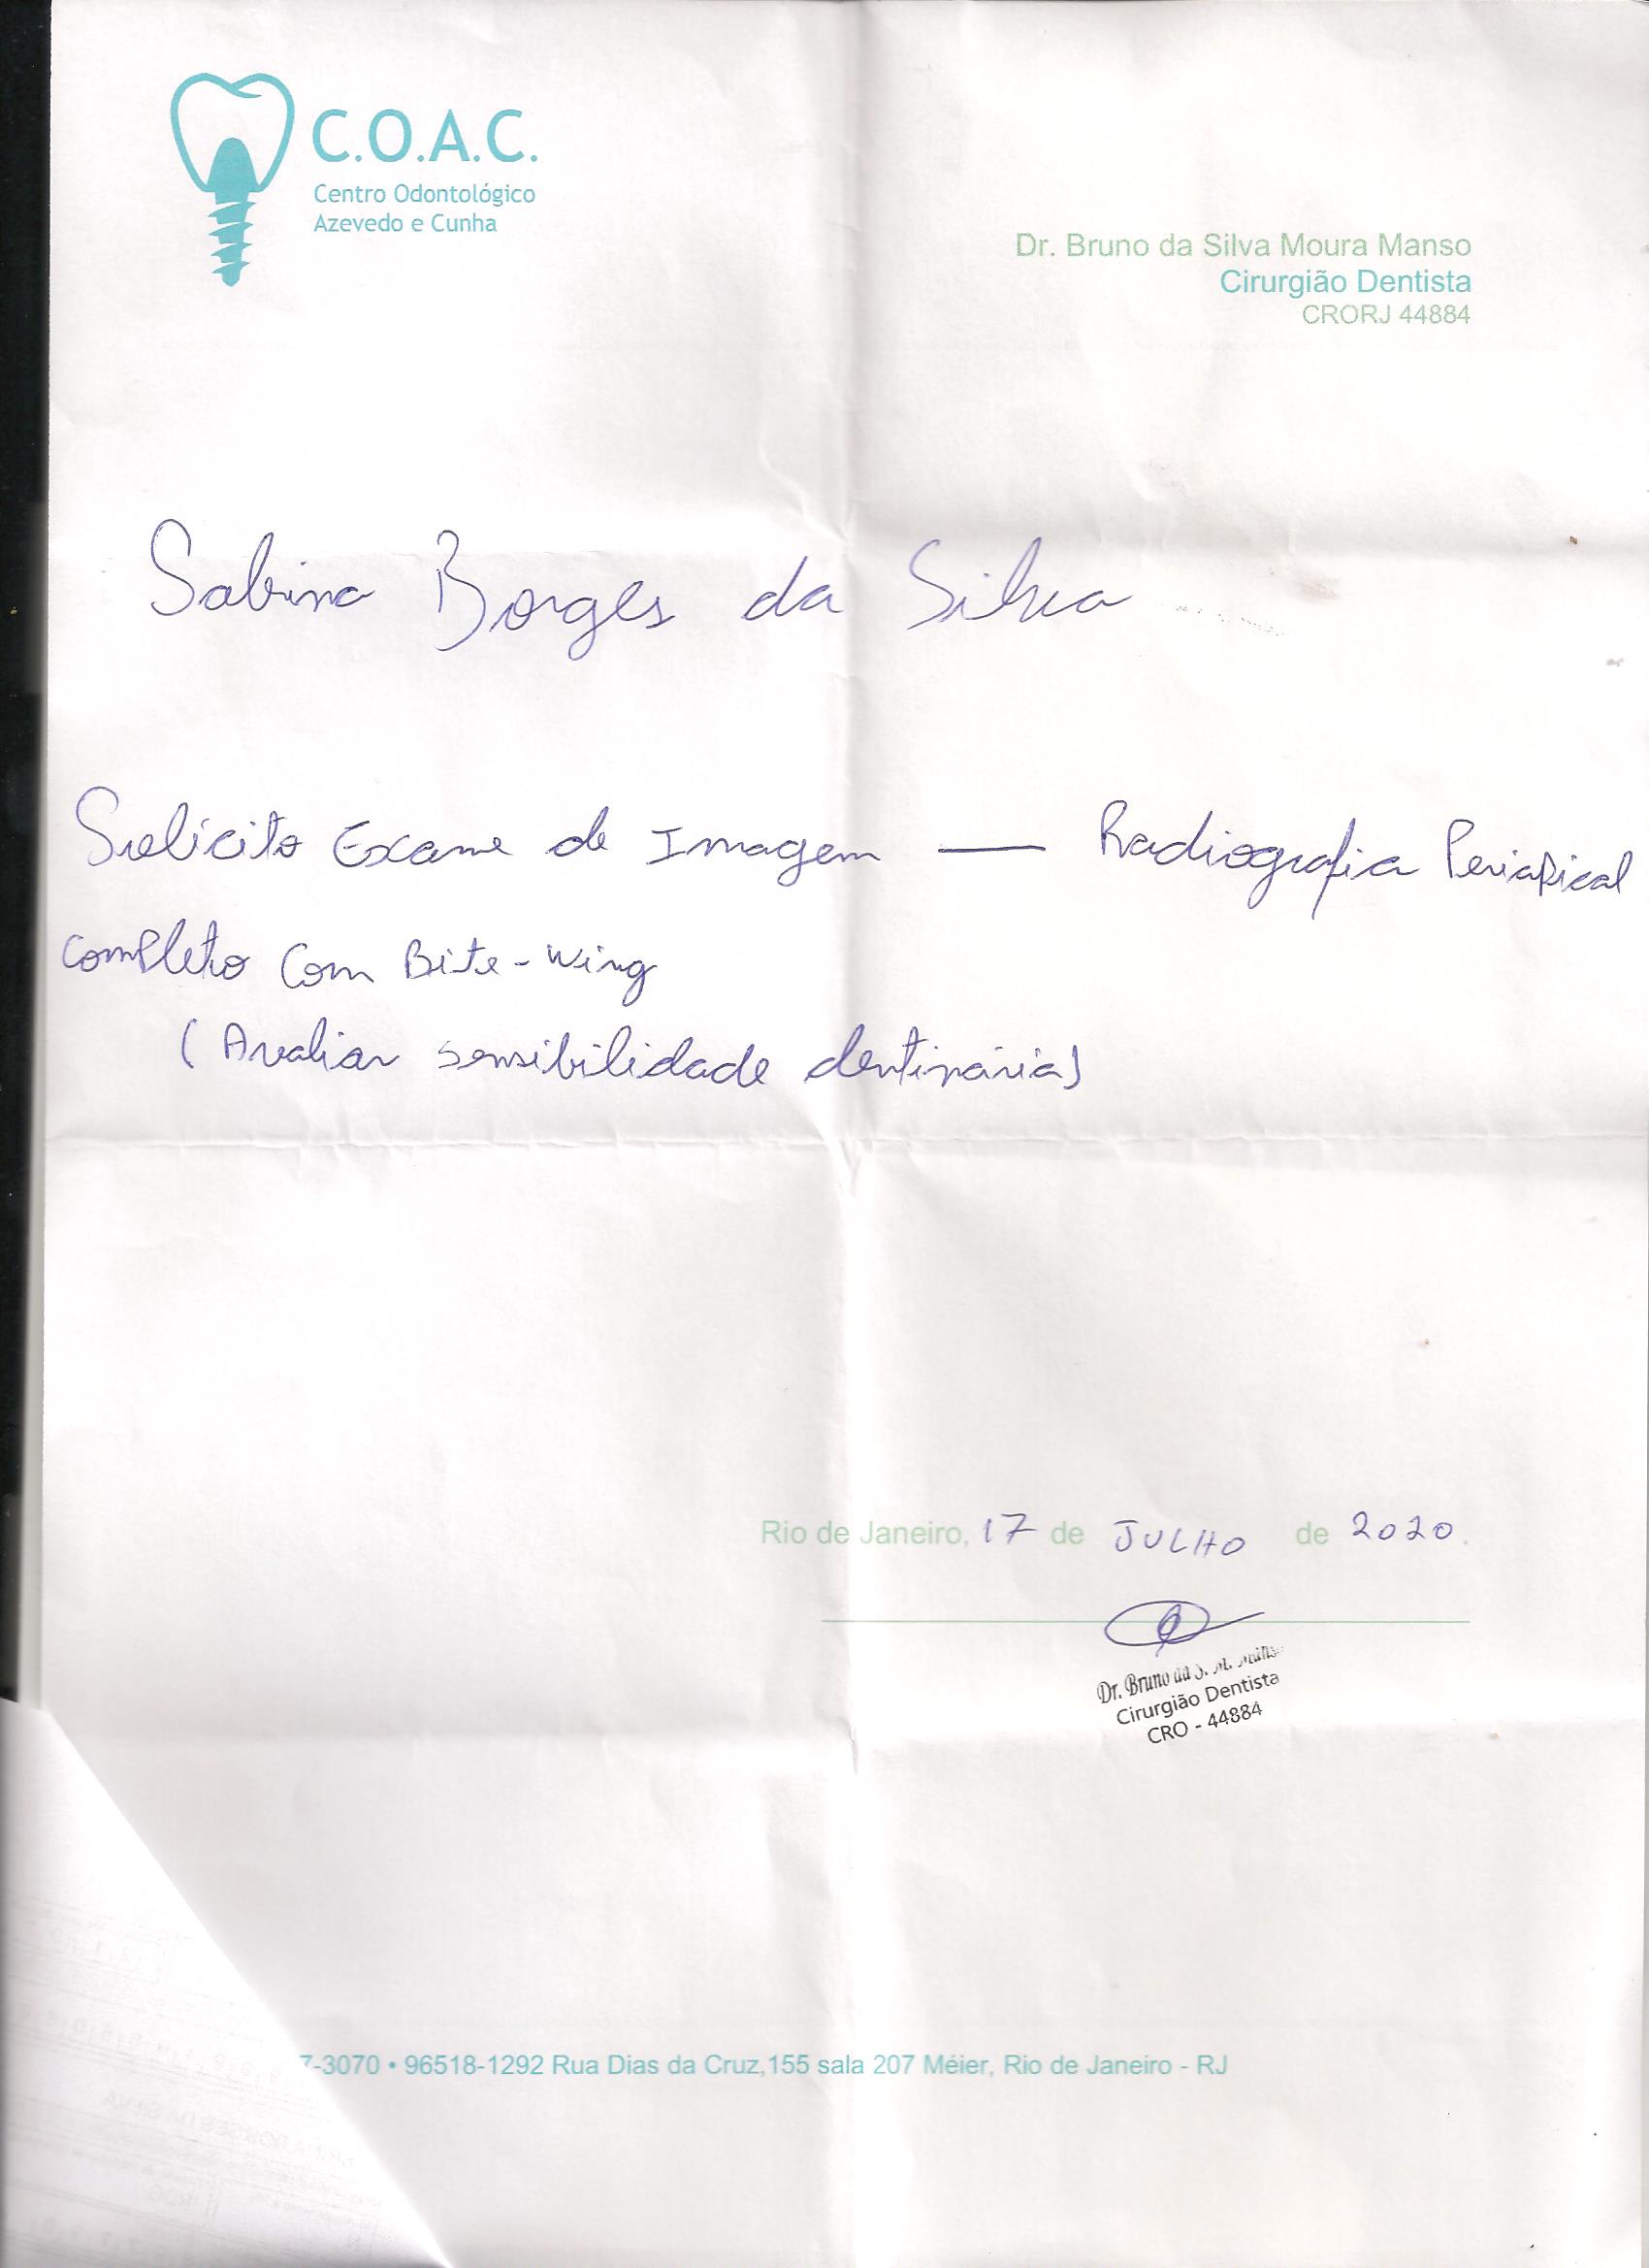 C.O.A.C.
Centro Odontológico
Azevedo e Cunha
Dr. Bruno da Silva Moura Manso
Cirurgião Dentista
CRORJ 44884
Sabina Borges da Silva
Solicito Exame de Imagem — Radiografia Periapical
Completo Com Bite-Wing
(Avaliar sensibilidade dentinária)
Rio de Janeiro, 17 de JULHO de 2020.
Dr. Bruno da S. M. Manso
Cirurgião Dentista
CRO - 44884
7-3070 • 96518-1292 Rua Dias da Cruz,155 sala 207 Méier, Rio de Janeiro - RJ